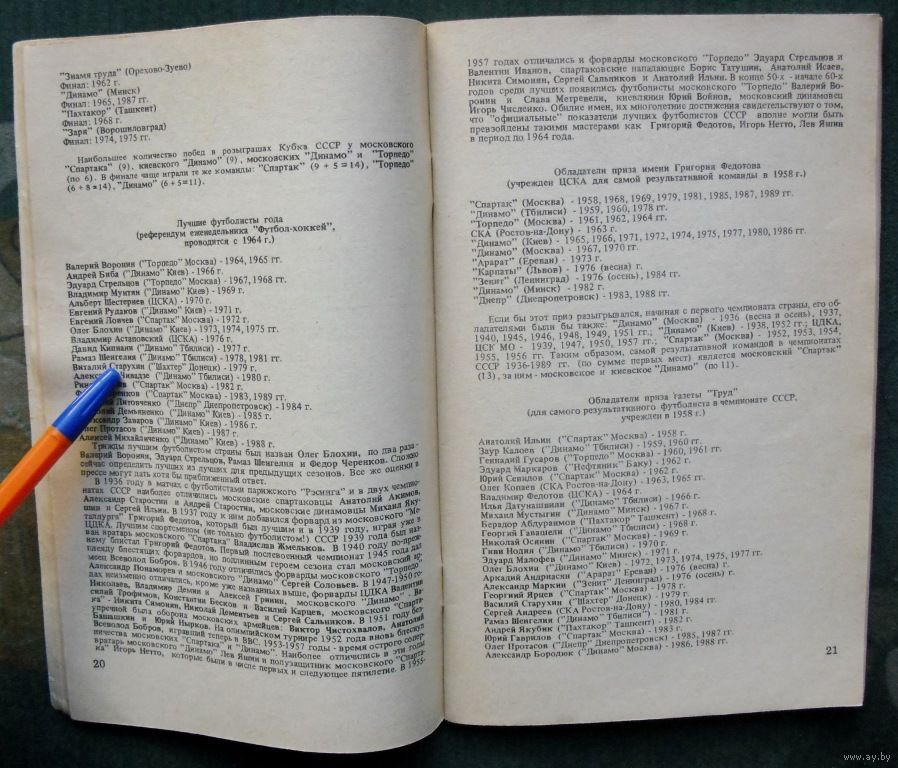 "Знамя труда" (Орехово-Зуево)
Финал: 1962 г.
"Динамо" (Минск)
Финал: 1965, 1987 гг.
"Пахтакор" (Ташкент)
Финал: 1968 г.
"Заря" (Ворошиловград)
Финал: 1974, 1975 гг.
Наибольшее количество побед в розыграшах Кубка СССР у московского
"Спартака" (9), киевского "Динамо" (9), московских "Динамо" и "Торпедо"
(по 6). В финале чаще играли те же команды: "Спартак" (9 + 5 = 14), "Торпедо"
(6 + 8 = 14), "Динамо" (6 + 5 = 11).
Лучшие футболисты года
(референдум еженедельника "Футбол-хоккей",
проводится с 1964 г.)
Валерий Воронин ("Торпедо" Москва) - 1964, 1965 гг.
Андрей Биба ("Динамо" Киев) - 1966 г.
Эдуард Стрельцов ("Торпедо" Москва) - 1967, 1968 гг.
Владимир Мунтян ("Динамо" Киев) - 1969 г.
Альберт Шестернев (ЦСКА) - 1970 г.
Евгений Рудаков ("Динамо" Киев) - 1971 г.
Евгений Ловчев ("Спартак" Москва) - 1972 г.
Олег Блохин ("Динамо" Киев) - 1973, 1974, 1975 гг.
Владимир Астаповский (ЦСКА) - 1976 г.
Давид Кипиани ("Динамо" Тбилиси) - 1977 г.
Рамаз Шенгелия ("Динамо" Тбилиси) - 1978, 1981 гг.
Виталий Старухин ("Шахтер" Донецк) - 1979 г.
("Динамо" Тбилиси) - 1980 г.
("Спартак" Москва) - 1982 г.
("Спартак" Москва) - 1983, 1989 гг.
Литовченко ("Днепр" Днепропетровск) - 1984 г.
Демьяненко ("Динамо" Киев) - 1985 г.
Заваров ("Динамо" Киев) - 1986 г.
Протасов ("Динамо" Киев) - 1987 г.
Алексей Михайличенко ("Динамо" Киев) - 1988 г.
Трижды лучшим футболистом страны был назван Олег Блохин, по два раза -
Валерий Воронин, Эдуард Стрельцов, Рамаз Шенгелия и Федор Черенков. Сложно
сейчас определить лучших из лучших для предыдущих сезонов. Все же оценки в
прессе могут дать хотя бы приближенный ответ.
В 1936 году в матчах с футболистами парижского "Рэсинга" и в двух чемпио-
натах СССР наиболее отличились московские спартаковцы Анатолий Акимов,
Александр Старостин и Андрей Старостин, московские динамовцы Михаил Яку-
шин и Сергей Ильин. В 1937 году к ним добавился форвард из московского "Ме-
таллурга" Григорий Федотов, который был лучшим и в 1939 году, играя уже в
ЦДКА. Лучшим спортсменом (не только футболистом!) СССР 1939 года был наз-
ван вратарь московского "Спартака" Владислав Жмельков. В 1940 году по-преж-
нему блистал Григорий Федотов. Первый послевоенный чемпионат 1945 года дал
плеяду блестящих форвардов, но подлинным героем сезона стал московский ар-
меец Всеволод Бобров. В 1946 году отличились форварды московского "Торпедо"
Александр Пономарев и московского "Динамо" Сергей Соловьев. В 1947-1950 го-
дах неизменно отличались, кроме уже названных выше, форварды ЦДКА Валентин
Николаев, Владимир Демин и Алексей Гринин, московского "Динамо" - Ва-
силий Трофимов, Константин Бесков и Василий Карцев, московского "Спарта-
ка" - Никита Симонян, Николай Дементьев и Сергей Сальников. В 1951 году без-
упречной была оборона московских армейцев: Виктор Чистохвалов, Анатолий
Башашкин и Юрий Нырков. На олимпийском турнире 1952 года вновь блеснул
Всеволод Бобров, игравший теперь в ВВС. 1953-1957 годы - время острого сопер-
ничества московских "Спартака" и "Динамо". Наиболее отличились в эти годы
вратарь московского "Динамо" Лев Яшин и полузащитник московского "Спарта-
ка" Игорь Нетто, которые были в числе первых и следующее пятилетие. В 1955-
20
1957 годах отличались и форварды московского "Торпедо" Эдуард Стрельцов и
Валентин Иванов, спартаковские нападающие Борис Татушин, Анатолий Исаев,
Никита Симонян, Сергей Сальников и Анатолий Ильин. В конце 50-х - начале 60-х
годов среди лучших появились футболисты московского "Торпедо" Валерий Во-
ронин и Слава Метревели, киевлянин Юрий Войнов, московский динамовец
Игорь Численко. Обилие имен, их многолетние достижения свидетельствуют о том,
что "официальные" показатели лучших футболистов СССР вполне могли быть
превзойдены такими мастерами как Григорий Федотов, Игорь Нетто, Лев Яшин
в период до 1964 года.
Обладатели приза имени Григория Федотова
(учрежден ЦСКА для самой результативной команды в 1958 г.)
"Спартак" (Москва) - 1958, 1968, 1969, 1979, 1981, 1985, 1987, 1989 гг.
"Динамо" (Тбилиси) - 1959, 1960, 1978 гг.
"Торпедо" (Москва) - 1961, 1962, 1964 гг.
СКА (Ростов-на-Дону) - 1963 г.
"Динамо" (Киев) - 1965, 1966, 1971, 1972, 1974, 1975, 1977, 1980, 1986 гг.
"Динамо" (Москва) - 1967, 1970 гг.
"Арарат" (Ереван) - 1973 г.
"Карпаты" (Львов) - 1976 (весна) г.
"Зенит" (Ленинград) - 1976 (осень), 1984 гг.
"Динамо" (Минск) - 1982 г.
"Днепр" (Днепропетровск) - 1983, 1988 гг.
Если бы этот приз разыгрывался, начиная с первого чемпионата страны, его об-
ладателями были бы также: "Динамо" (Москва) - 1936 (весна и осень), 1937,
1940, 1945, 1946, 1948, 1949, 1951 гг.; "Динамо" (Киев) - 1938, 1952 гг.; ЦДКА,
ЦСК МО - 1939, 1947, 1950, 1957 гг.; "Спартак" (Москва) - 1952, 1953, 1954,
1955, 1956 гг. Таким образом, самой результативной командой в чемпионатах
СССР 1936-1989 гг. (по сумме первых мест) является московский "Спартак"
(13), за ним - московское и киевское "Динамо" (по 11).
Обладатели приза газеты "Труд"
(для самого результативного футболиста в чемпионате СССР,
учрежден в 1958 г.)
Анатолий Ильин ("Спартак" Москва) - 1958 г.
Заур Калоев ("Динамо" Тбилиси) - 1959, 1960 гг.
Геннадий Гусаров ("Торпедо" Москва) - 1960, 1961 гг.
Эдуард Маркаров ("Нефтяник" Баку) - 1962 г.
Юрий Севидов ("Спартак" Москва) - 1962 г.
Олег Копаев (СКА Ростов-на-Дону) - 1963, 1965 гг.
Владимир Федотов (ЦСКА) - 1964 г.
Илья Датунашвили ("Динамо" Тбилиси) - 1966 г.
Михаил Мустыгин ("Динамо" Минск) - 1967 г.
Берадор Абдураимов ("Пахтакор" Ташкент) - 1968 г.
Георгий Гавашели ("Динамо" Тбилиси) - 1968 г.
Николай Осянин ("Спартак" Москва) - 1969 г.
Гиви Нодия ("Динамо" Тбилиси) - 1970 г.
Эдуард Малофеев ("Динамо" Минск) - 1971 г.
Олег Блохин ("Динамо" Киев) - 1972, 1973, 1974, 1975, 1977 гг.
Аркадий Андриасян ("Арарат" Ереван) - 1976 (весна) г.
Александр Маркин ("Зенит" Ленинград) - 1976 (осень) г.
Георгий Ярцев ("Спартак" Москва) - 1978 г.
Василий Старухин ("Шахтер" Донецк) - 1979 г.
Сергей Андреев (СКА Ростов-на-Дону) - 1980, 1984 гг.
Рамаз Шенгелия ("Динамо" Тбилиси) - 1981 г.
Андрей Якубик ("Пахтакор" Ташкент) - 1982 г.
Юрий Гаврилов ("Спартак" Москва) - 1983 г.
Олег Протасов ("Днепр" Днепропетровск) - 1985, 1987 гг.
Александр Бородюк ("Динамо" Москва) - 1986, 1988 гг.
21
www.ay.by